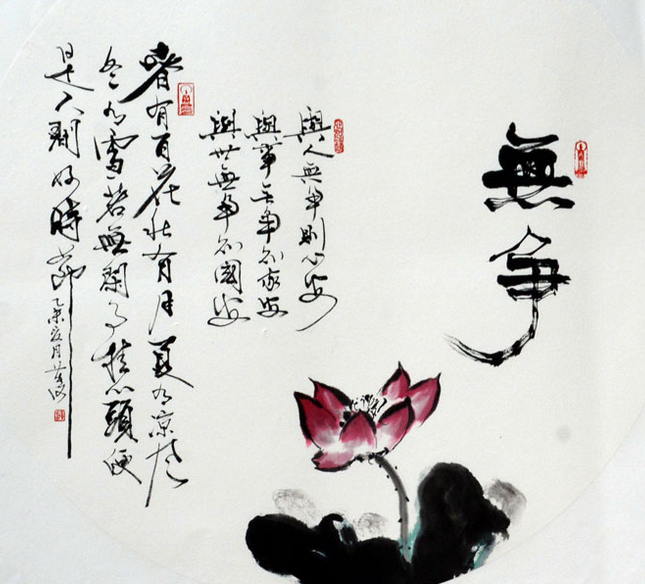 無爭
與人無爭則心安
與事無爭則家安
與世無爭則國安
春有百花秋有月夏有凉風
冬有雪若無閑事掛心頭便
是人間好時節
乙未夏月